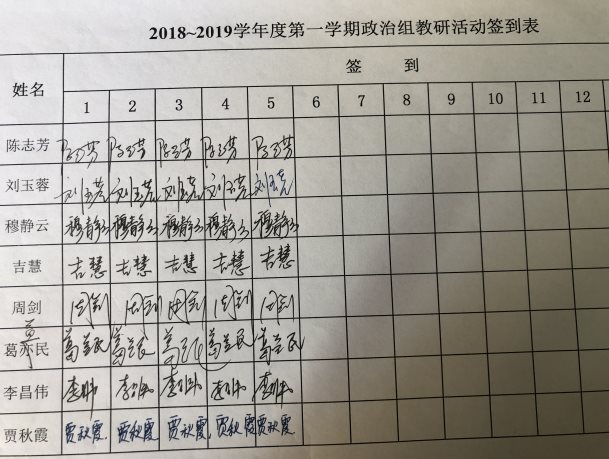 2018~2019学年度第一学期政治组教研活动签到表
姓名 签 到
1 2 3 4 5 6 7 8 9 10 11 12
陈志芳 陈志芳 陈志芳 陈志芳 陈志芳 陈志芳
刘玉蓉 刘玉蓉 刘玉蓉 刘玉蓉 刘玉蓉 刘玉蓉
穆静云 穆静云 穆静云 穆静云 穆静云 穆静云
吉慧 吉慧 吉慧 吉慧 吉慧 吉慧
周剑 周剑 周剑 周剑 周剑 周剑
葛亦民
李昌伟 李昌伟 李昌伟 李昌伟 李昌伟 李昌伟
贾秋霞 贾秋霞 贾秋霞 贾秋霞 贾秋霞 贾秋霞